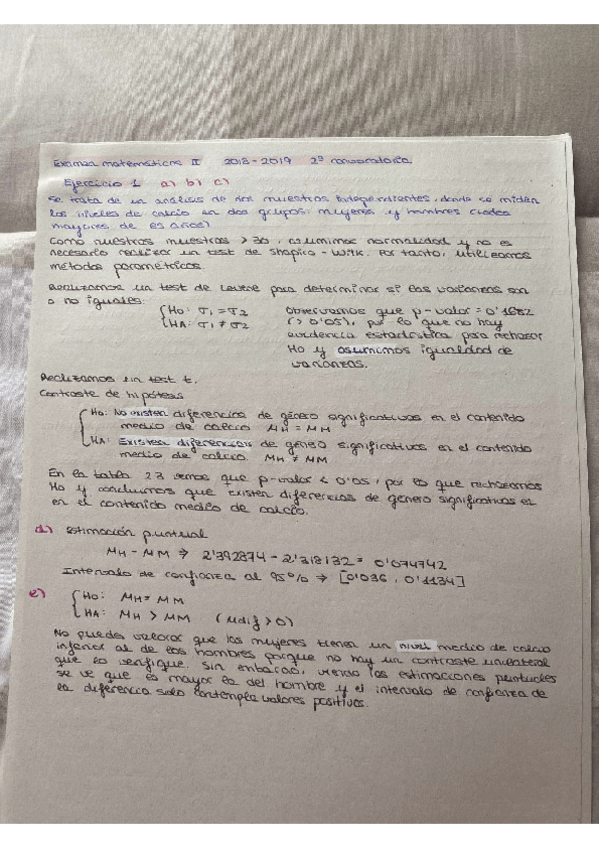 Examen matemáticas II 2018-2019 2ª convocatoria
Ejercicio 1 a) b) c)
Se trata de un análisis de dos muestras independientes, donde se miden
los niveles de calcio en dos grupos: mujeres y hombres (todos
mayores de 65 años)
Como nuestras muestras > 30, asumimos normalidad y no es
necesario realizar un test de Shapiro-Wilk. Por tanto, utilizamos
métodos paramétricos.
Realizamos un test de Levene para determinar si las varianzas son
o no iguales:
{H0: σ1 = σ2
HA: σ1 ≠ σ2
Observamos que p-valor = 0'1682
(> 0'05), por lo que no hay
evidencia estadística para rechazar
H0 y asumimos igualdad de
varianzas.
Realizamos un test t.
Contraste de hipótesis
{H0: No existen diferencias de género significativos en el contenido
medio de calcio μH = μM
HA: Existen diferencias de género significativos en el contenido
medio de calcio. μH ≠ μM
En la tabla 23 vemos que p-valor < 0'05, por lo que rechazamos
H0 y concluimos que existen diferencias de género significativas en
en el contenido medio de calcio.
d) Estimación puntual
μH - μM ⇒ 2'392874 - 2'318132 = 0'074742
Intervalo de confianza al 95% ⇒ [0'036, 0'1134]
e) {H0: μH = μM
HA: μH > μM (μdif > 0)
No puedes valorar que las mujeres tienen un nivel medio de calcio
inferior al de los hombres porque no hay un contraste unilateral
que lo verifique. Sin embargo, viendo las estimaciones puntuales
se ve que es mayor la del hombre y el intervalo de confianza de
la diferencia solo contempla valores positivos.